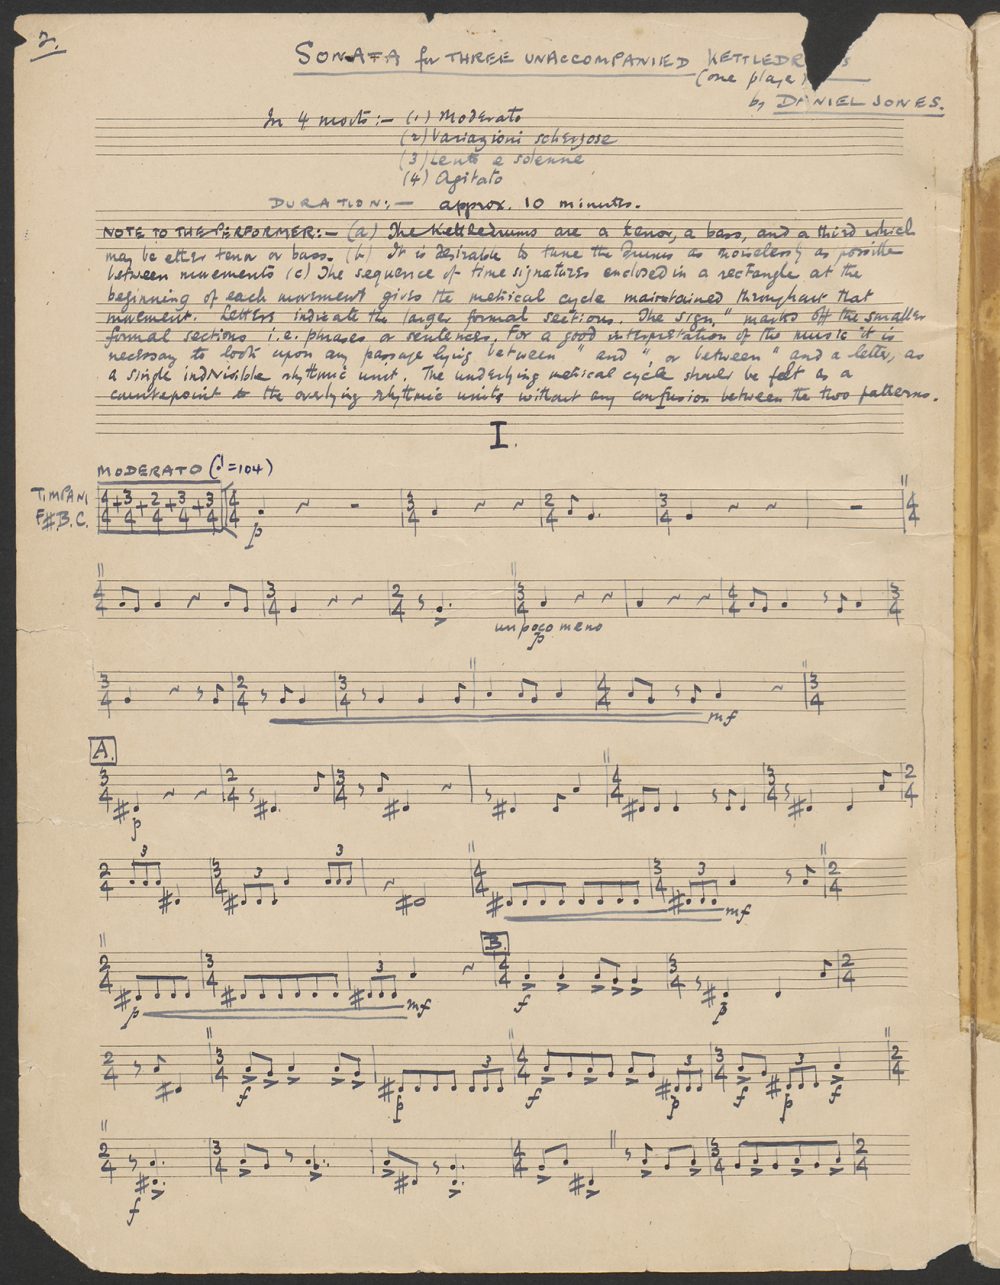 2.
SONATA for THREE UNACCOMPANIED KETTLEDR S
(one player)
by DANIEL JONES.
In 4 movts:- (1) Moderato
(2) Variazioni scherzose
(3) Lento e solenne
(4) Agitato
DURATION:- approx. 10 minutes.
NOTE TO THE PERFORMER:- (a) The Kettledrums are a tenor, a bass, and a third which
may be either tenor or bass. (b) It is desirable to tune the Drums as noiselessly as possible
between movements (c) The sequence of time signatures enclosed in a rectangle at the
beginning of each movement gives the metrical cycle maintained throughout that
movement. Letters indicate the larger formal sections. The sign " marks off the smaller
formal sections i.e. phrases or sentences. For a good interpretation of the music it is
necessary to look upon any passage lying between " and " or between " and a letter, as
a single indivisible rhythmic unit. The underlying metrical cycle should be felt as a
counterpoint to the overlying rhythmic units without any confusion between the two patterns.
I.
MODERATO (♩=104)
TIMPANI
F#.B.C.
4/4 + 3/4 + 2/4 + 3/4 + 3/4 4/4 3/4 2/4 3/4 4/4
p
4/4 3/4 2/4 3/4 4/4 3/4
un poco meno
p
3/4 2/4 3/4 4/4 3/4
mf
A.
3/4 2/4 3/4 4/4 3/4 2/4
p
3 3 3 3
2/4 3/4 4/4 3/4 2/4
mf
B.
3
2/4 3/4 4/4 3/4 2/4
p mf f p
3 3 3
2/4 3/4 4/4 3/4 2/4
f p f p f p f
2/4 3/4 4/4 3/4 2/4
f